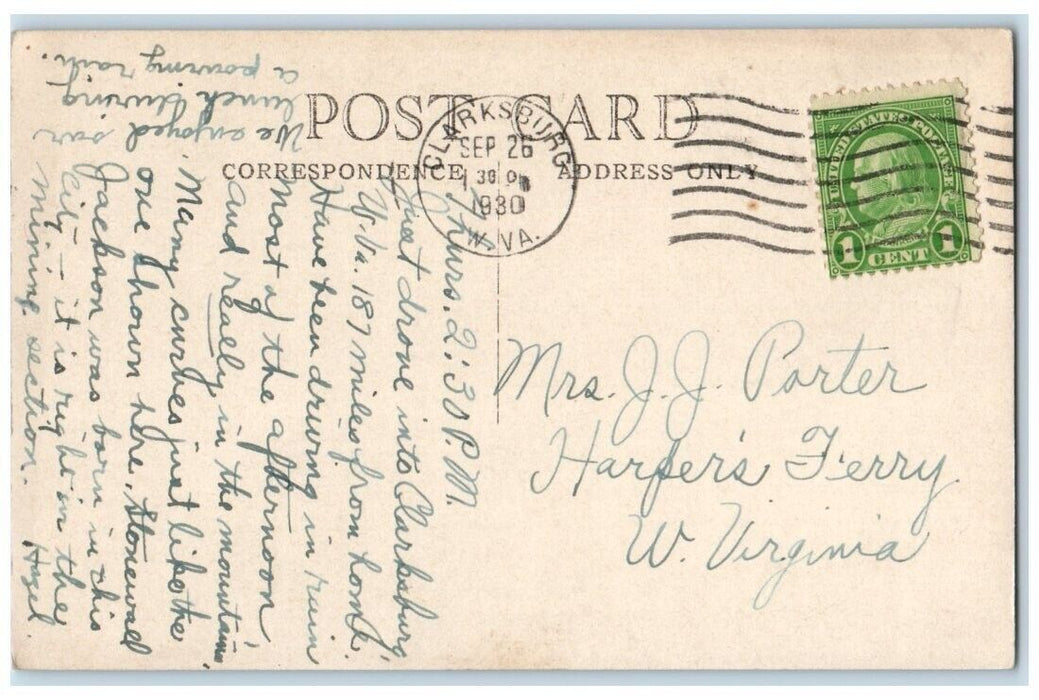 POST CARD
CORRESPONDENCE
ADDRESS ONLY
CLARKSBURG
SEP 26
1930
W. VA.
UNITED STATES POSTAGE
1 CENT 1
Thurs. 2:30 P.M.
Just drove into Clarksburg
W. Va. 187 miles from home.
Have been driving in rain
most of the afternoon
and really in the mountains.
Many curves just like the
one shown here. Stonewall
Jackson was born in this
City - it is right in the
mining section. Hazel.
We enjoyed our
lunch during
a pouring rain.
Mrs. J. J. Porter
Harper's Ferry
W. Virginia